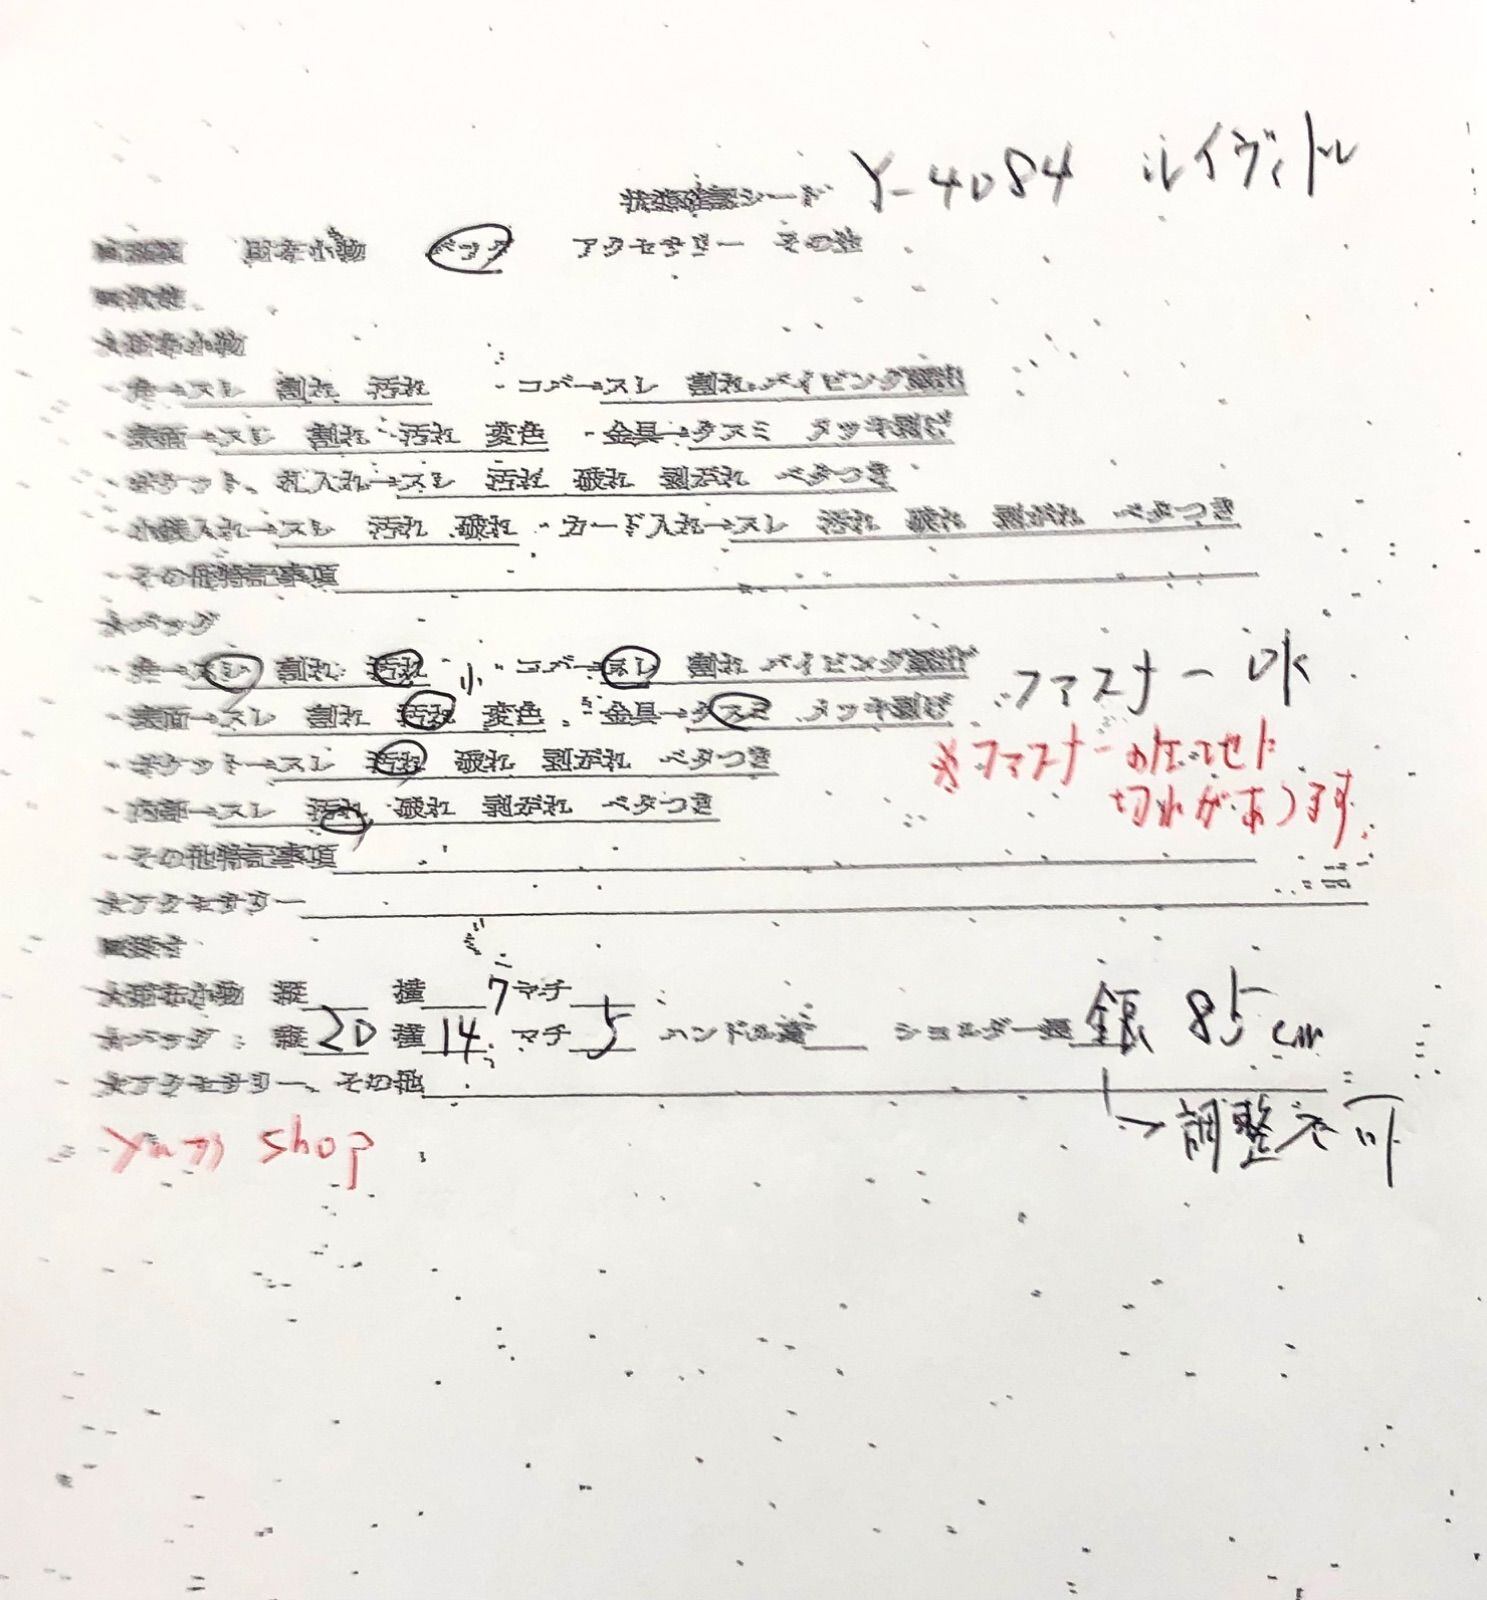 状態確認シート Y-4084 ルイヴィトン
財布小物 バッグ アクセサリー その他
■状態
★財布小物
・角→スレ 割れ 汚れ ・コバ→スレ 割れ パイピング
・表面→スレ 割れ 汚れ 変色 ・金具→クスミ メッキ剥げ
・ポケット、札入れ→スレ 汚れ 破れ 剥がれ ベタつき
・小銭入れ→スレ 汚れ 破れ ・カード入れ→スレ 汚れ 破れ 剥がれ ベタつき
・その他特記事項
★バッグ
・角→スレ 割れ 汚れ 小 ・コバ→スレ 割れ パイピング
ファスナー OK
・表面→スレ 割れ 汚れ 変色 ・金具→クスミ メッキ剥げ
・ポケット→スレ 汚れ 破れ 剥がれ ベタつき
※ファスナーの
切れがあります。
・内部→スレ 汚れ 破れ 剥がれ ベタつき
・その他特記事項
★アクセサリー
★財布小物 縦 横 マチ
★バッグ 縦 20 横 14 マチ 5 ハンドル ショルダー 85cm
★アクセサリー、その他
→調整不可
shop